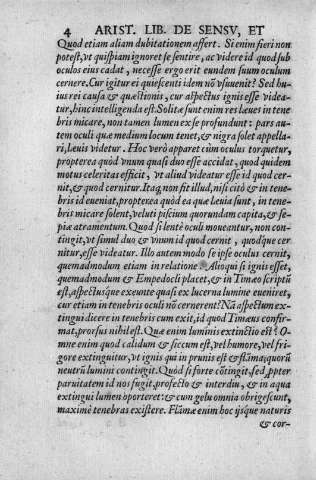 4 ARIST. LIB. DE SENSV, ET
Quod etiam aliam dubitationem affert. Si enim fieri non
potest, vt quispiam ignoret se sentire, ac videre id quod sub
oculos eius cadat, necesse ergo erit eundem suum oculum
cernere. Cur igitur ei quiescenti idem nõ vsuuenit? Sed hu-
ius rei causa & quæstionis, cur aspectus ignis esse videa-
tur, hinc intelligenda est. Solitæ sunt enim res læues in tene-
bris micare, non tamen lumen ex se profundunt: pars au-
tem oculi quæ medium locum tenet, & nigra solet appella-
ri, læuis videtur. Hoc verò apparet cùm oculus torquetur,
propterea quòd vnum quasi duo esse accidat, quod quidem
motus celeritas efficit, vt aliud videatur esse id quod cer-
nit, & quod cernitur. Itaq; non fit illud, nisi citò & in tene-
bris id eueniat, propterea quòd ea quæ leuia sunt, in tene-
bris micare solent, veluti piscium quorundam capita, & se-
piæ atramentum. Quod si lentè oculi moueantur, non con-
tingit, vt simul duo & vnum id quod cernit, quodque cer-
nitur, esse videatur. Illo autem modo se ipse oculus cernit,
quemadmodum etiam in relatione. Alioqui si ignis esset,
quemadmodum & Empedocli placet, & in Timæo scriptũ
est, aspectusque exeunte quasi ex lucerna lumine eueniret,
cur etiam in tenebris oculi nõ cernerent? Nã aspectum ex-
tingui dicere in tenebris cum exit, id quod Timæus confir-
mat, prorsus nihil est. Quæ enim luminis extinctio est? O-
mne enim quod calidum & siccum est, vel humore, vel fri-
gore extinguitur, vt ignis qui in prunis est & flãma: quorũ
neutrũ lumini contingit. Quòd si forte cõtingit, sed ppter
paruitatem id nos fugit, profecto & interdiu, & in aqua
extingui lumen oporteret: & cum gelu omnia obrigescunt,
maximè tenebras existere. Flãmæ enim hoc ijsque naturis
& cor-